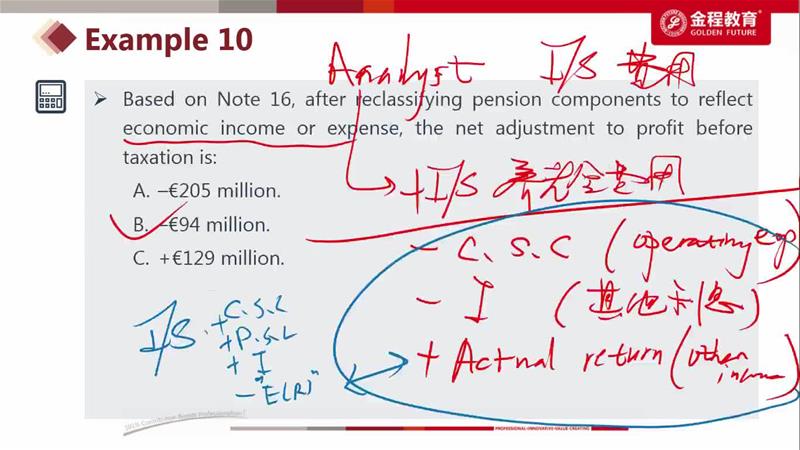 金程教育
GOLDEN FUTURE
Example 10
Analyst I/S 费用
➢ Based on Note 16, after reclassifying pension components to reflect
economic income or expense, the net adjustment to profit before
taxation is:
A. –€205 million.
B. –€94 million.
C. +€129 million.
+ I/S 养老金费用
- C.S.C (operating exp)
- I (其他利息)
+ Actual return (other income)
I/S + C.S.C
+ P.S.C
+ I
- "E(R)"
101% Contribution Breeds Professionalism!
PROFESSIONAL·INNOVATIVE·VALUE-CREATING